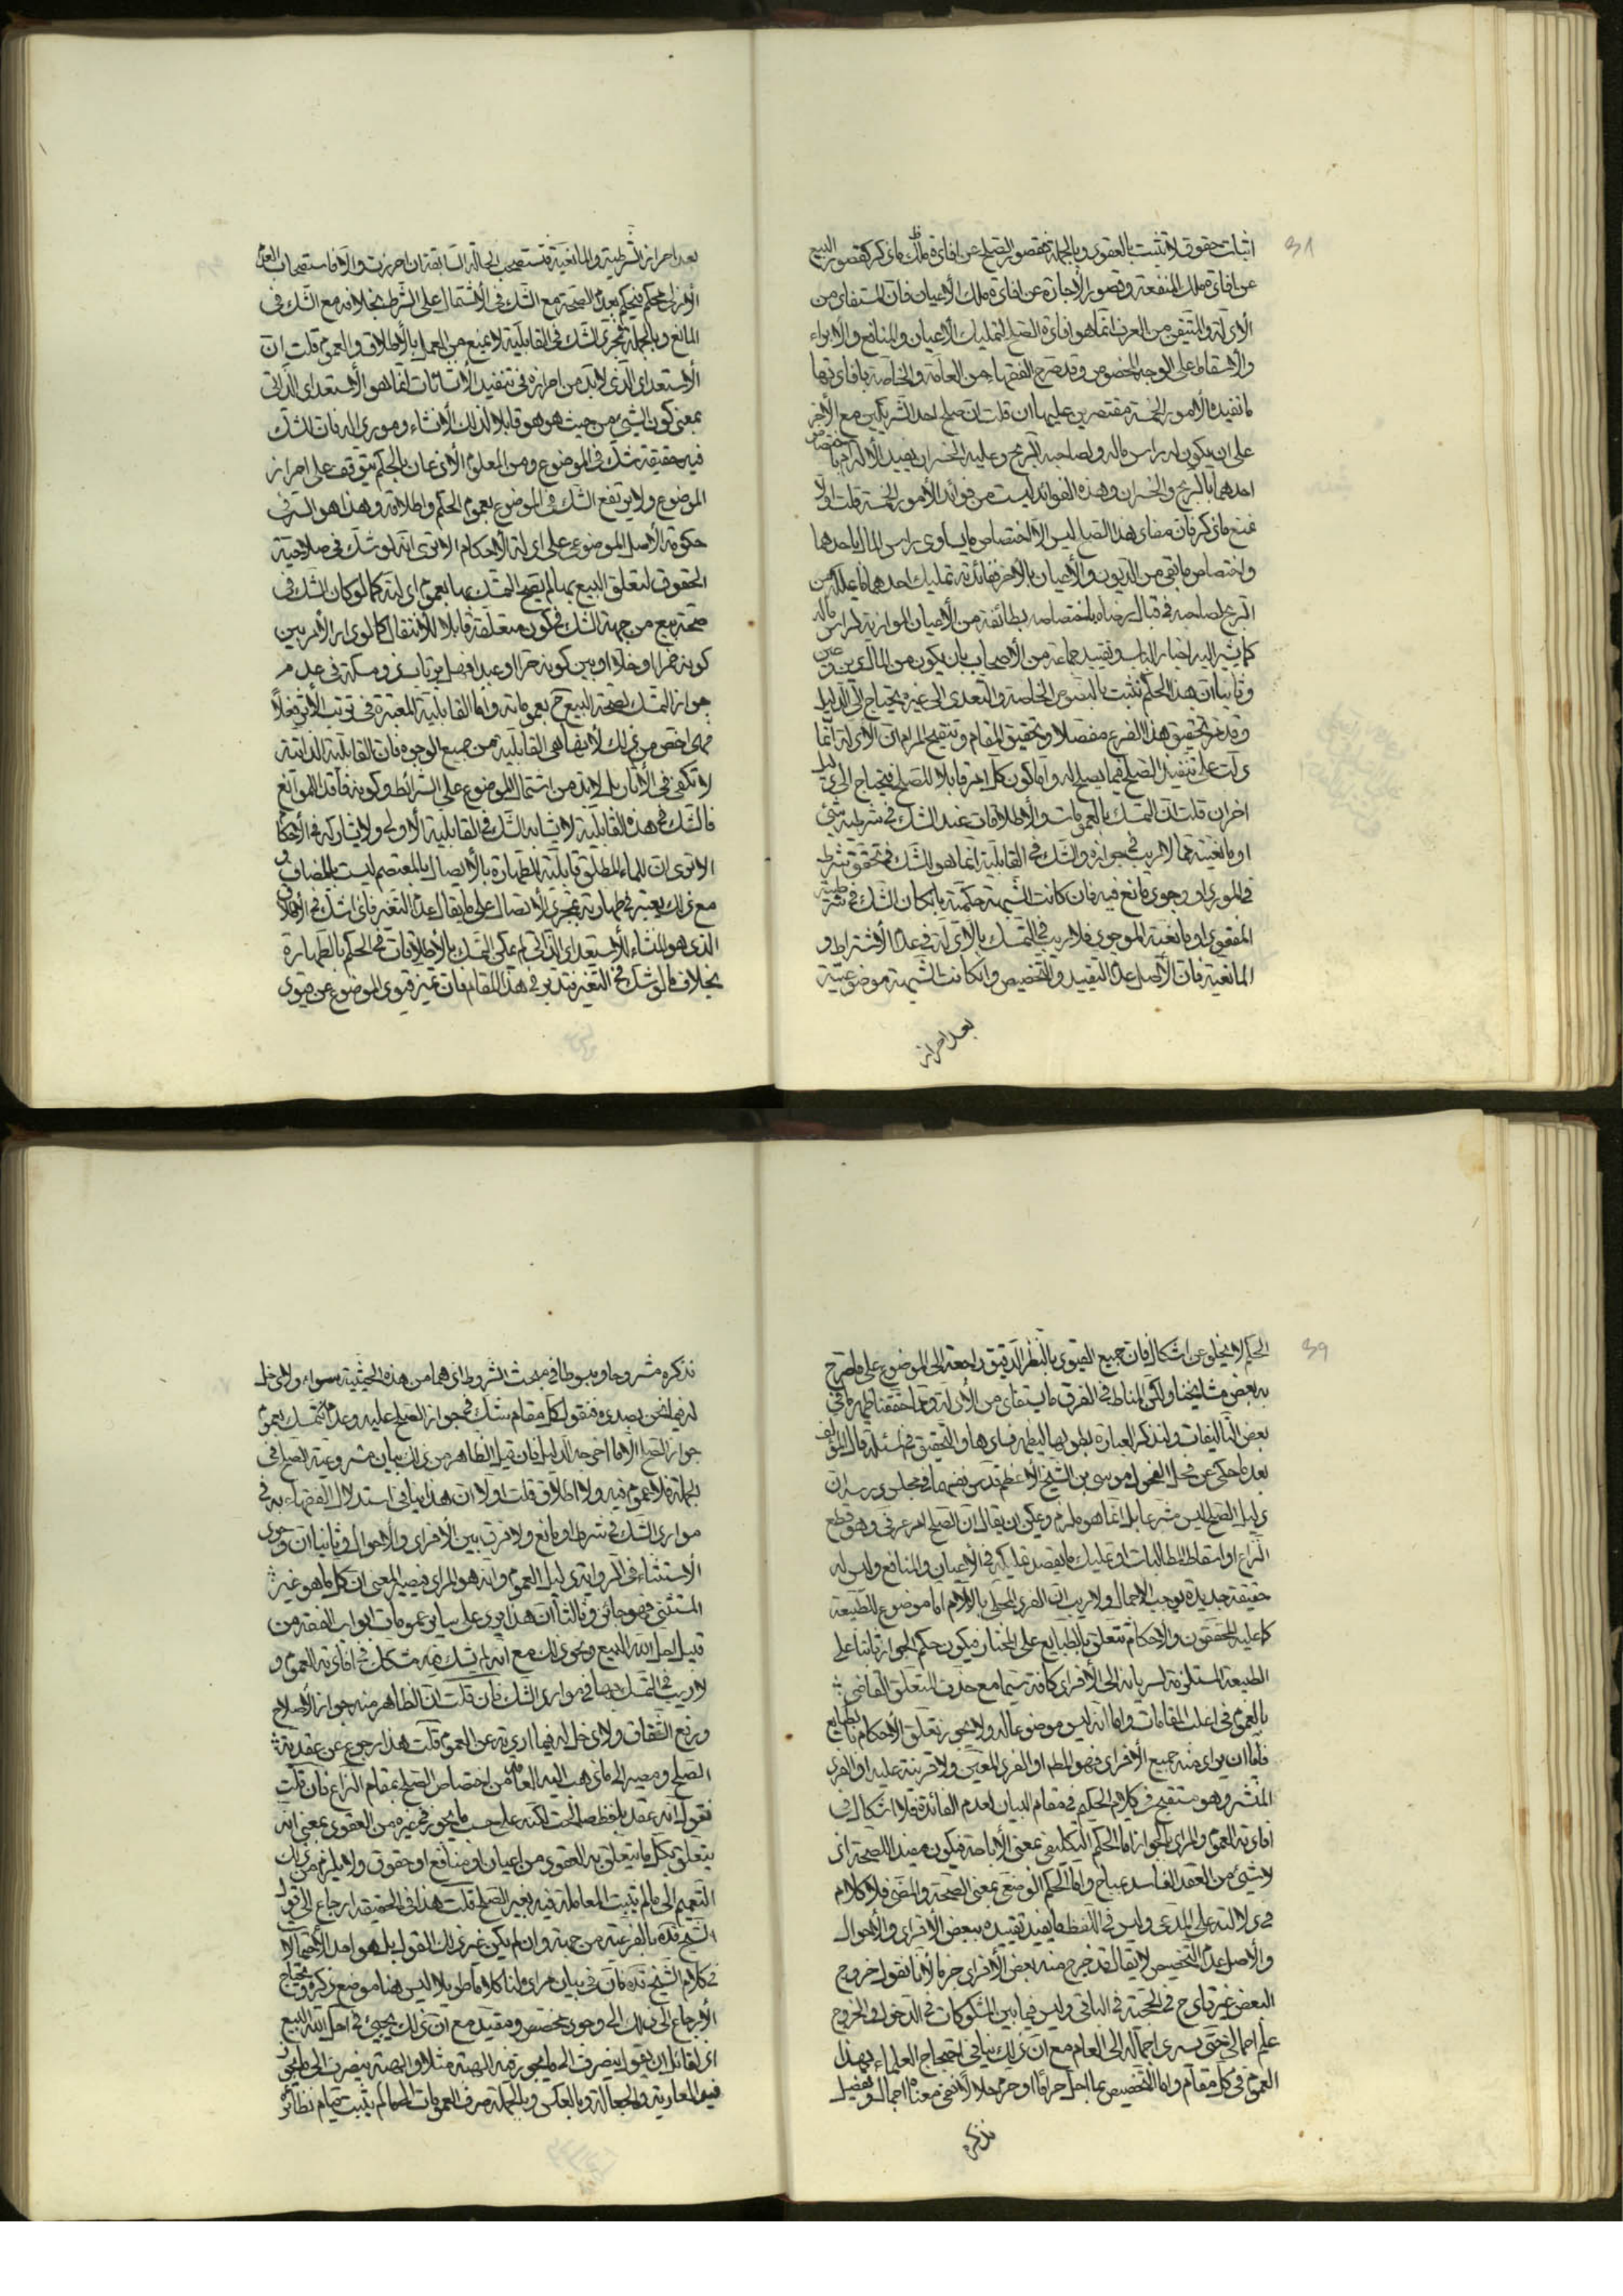 ٣٨
اثبات حقوق لا تثبت بالعقود وبالجملة فقصور الصلح عن افادة ملك ما ذكر كقصور البيع
عن افادة ملك المنفعة وقصور الأجارة عن افادة ملك الأعيان فان المستفاد من
الادلة والمتيقن من العرف انما هو افادة الصلح لتمليك الأعيان والمنافع والابراء
والاسقاط على الوجه المخصوص وقد صرح الفقهاء من العامة والخاصة بافادتها
ما تفيده الامور الخمسة مقتصرين عليها ان قلت ان صلح احد الشريكين مع الآخر
على ان يكون له راس ماله ولصاحبه الربح وعليه الخسران يفيد الالزام باختصاص
احدهما بالربح والخسران وهذه الفوائد ليست من فوائد الأمور الخمسة قلت اولا
نمنع ما ذكر فان مفاد هذا الصلح ليس الا اختصاص ما يساوى راس المال باحدهما
واختصاص ما بقى من الديون والأعيان بالآخر ففائدته تمليك احدهما ما يملكه من
الربح لصاحبه في قبال رضاه باختصاصه بطائفة من الأعيان الموازية لراس ماله
كما يشير اليه اخبار الباب وتقييد جماعة من الأصحاب بان يكون من المال دين وعين
وثانيا ان هذا الحكم تثبت بالنصوص الخاصة والتعدى الى غيره يحتاج الى الدليل
وقد مر تحقيق هذا الفرع مفصلا وتحقيق المقام وتنقيح المرام ان الأدلة انما
دلت على تنفيذ الصلح فيما يصلح له واما كون كل امر قابلا للصلح فيحتاج الى دليل
اخر ان قلت ان التمسك بالعمومات والأطلاقات عند الشك في شرطية شئ
او مانعيته مما لا ريب في جوازه والشك في القابلية انما هو الشك في تحقق شرط
في المورد او وجود مانع فيه فان كانت الشبهة حكمية بان كان الشك في شرطية
المفقود او مانعية الموجود فلا ريب في التمسك بالادلة في عدم الاشتراط و
المانعية فان الأصل عدم التقييد والتخصيص وان كانت الشبهة موضوعية
بعد احراز
بعد احراز الشرطية والمانعية فتستصحب الحالة السابقة ان احرزت والا فاستصحاب العدم
الأزلى محكم فيحكم بعدم الصحة مع الشك في الأشتمال على الشرط بخلافه مع الشك في
المانع وبالجملة فمجرد الشك في القابلية لا يمنع من العمل بالأطلاق والعموم قلت ان
الأستعداد الذى لابد من احرازه في تنفيذ الانشائات انما هو الأستعداد الذاتى
بمعنى كون الشئ من حيث هو هو قابلا لذلك الأنشاء وموردا له فان الشك
فيه حقيقة شك في الموضوع ومن المعلوم ان الأذعان بالحكم يتوقف على احراز
الموضوع ولا يرتفع الشك في الموضوع بعموم الحكم واطلاقه وهذا هو السر في
حكومة الأصل الموضوعى على ادلة الأحكام الا ترى انه لو شك في صلاحية
الحقوق لتعلق البيع بها لم يصح التمسك بها بعموم ادلته كما لو كان الشك في
صحة بيع من جهة الشك في كون متعلقه قابلا للأنتقال كما لو دار الأمر بين
كونه خمرا او خلا او بين كونه حرا او عبدا فهل يرتاب ذو مسكة في عدم
جواز التمسك لصحة البيع ح بعموماته واما القابلية المعتبرة في ترتب الأثر فعلا
فهى اخص من ذلك لأنها هى القابلية من جميع الوجوه فان القابلية الذاتية
لا تكفى في الآثار بل لابد من اشتمال الموضوع على الشرائط وكونه فاقد الموانع
فالشك في هذه القابلية لا يشابه الشك في القابلية الأولى ولا يشاركه في الأحكام
الا ترى ان للماء المطلق قابلية للطهارة بالأتصال بالمعتصم ليست بالمضاف و
مع ذلك يعتبر في طهارته بمجرد الأتصال على ما يقال عدم التغير فاذا شك في الأطلاق
الذى هو المنشاء للأستعداد الذاتى لم يمكن التمسك بالأطلاقات في الحكم بالطهارة
بخلاف ما لو شك في التغير فتدبر في هذا المقام فان تميز قيود الموضوع عن قيود
٣٩
الحكم لا يخلو عن اشكال فان جميع القيود بالنظر الدقيق راجعة الى الموضوع على ما صرح
به بعض مشايخنا ولكن المناط في الفرق ما يستفاد من الأدلة وما حققناه في
بعض التأليفات ولنذكر العبارة بطولها ليظهر فسادها والتحقيق في المسئلة قال المؤلف
بعد ما حكى عن فحل الفحول موسى بن الشيخ الأعظم قدس نفسهما في مجلس درسه ان
دليل الصلح ليس مشرعا بل انما هو ملزم ويمكن ان يقال ان الصلح امر عرفى وهو قطع
النزاع او اسقاط المطالبات او تمليك ما يقصد تمليكه في الأعيان والمنافع وليس له
حقيقة جديدة يوجب الاجمال ولا ريب ان المفرد المحلى باللام اما موضوع للطبيعة
كما عليه المحققون والأحكام تتعلق بالطبايع على المختار فيكون حكم الجواز ثابتا على
الطبيعة المستلزمة لسريانه الى الأفراد كافة سيما مع حذف المتعلق القاضى
بالعموم في اغلب المقامات واما انه ليس موضوعا له ولا يجوز تعلق الأحكام بالطبايع
فاما ان يراد منه جميع الأفراد فهو المط او الفرد المعين ولا قرينة عليه او الفرد
المنتشر وهو مستقبح في كلام الحكيم في مقام البيان لعدم الفائدة فلا اشكال في
افادته العموم والمراد بالجواز اما الحكم التكليفى بمعنى الأباحة فيكون مفيد اللصحة اذ
لا شئ من العقد الفاسد بمباح واما الحكم الوضعى بمعنى الصحة والمضى فلا كلام
في دلالته على المدعى وليس في اللفظ ما يفيد تقييده ببعض الأفراد والأحوال
والأصل عدم التخصيص لا يقال قد خرج منه بعض الأفراد جزما لأنا نقول خروج
البعض غير قادح في الحجية في الباقى وليس فيما بين المشكوكات في الدخول والخروج
علم اجمالى حتى يسرى اجماله الى العام مع ان ذلك ينافى احتجاج العلماء بهذا
العموم في كل مقام واما التخصيص بما احل حراما او حرم حلالا ففى معناه اجمال وتفصيل
نذكره
نذكره مشروحا ومبسوطا في مبحث الشروط اذ هما من هذه الحيثية سواء ولا دخل
له فيما نحن بصدده فنقول كل مقام شك في جواز الصلح عليه وعدمه نتمسك بعموم
جواز الصلح الا ما اخرجه الدليل فان قيل الظاهر من ذلك بيان مشروعية الصلح في
الجملة فلا عموم فيه ولا اطلاق قلت اولا ان هذا ينافى استدلال الفقهاء به في
موارد الشك في شرط او مانع ولا فرق بين الأفراد والأحوال وثانيا ان وجود
الأستثناء في الرواية دليل العموم وانه هو المراد فيصير المعنى ان كل ما هو غير
المستثنى فهو جائز وثالثا ان هذا يرد على سائر عمومات ابواب الفقه من
قبيل احل الله البيع ونحو ذلك مع انه لم يشك فيه مشكك في افادته العموم و
لا ريب في التمسك بها في موارد الشك فان قلت ان الظاهر منه جواز الأصلاح
ورفع الشقاق ولا دخل له فيما اردته عن العموم قلت هذا رجوع عن عقدية
الصلح ومصير الى ما ذهب اليه العامة من اختصاص الصلح بمقام النزاع فان قلت
نقول انه عقد بلفظ صالحت لكنه على حسب ما يجوز في غيره من العقود بمعنى انه
يتعلق بكل ما يتعلق به العقود من اعيان او منافع او حقوق ولا يلزم من ذلك
التعميم الى ما لم يثبت المعاملة فيه بغير الصلح قلت هذا في الحقيقة ارجاع الى قول
الشيخ قده بالفرعية من جهة وان لم يكن عين ذلك القول بل هو احد الأحتمالات
في كلام الشيخ قده فان في بيان مراده لنا كلاما طويلا ليس هنا موضع ذكره ويحتاج
الأرجاع الى ذلك الى وجود مخصص ومقيد مع ان ذلك يجيئ في احل الله البيع
اذ لقائل ان يقول ينصرف الى ما يجوز فيه الهبة مثلا والهبة ينصرف الى ما يجوز
فيه العارية والجعالة وبالعكس وبالجملة صرف العمومات الى ما لم يثبت قيام نظائر